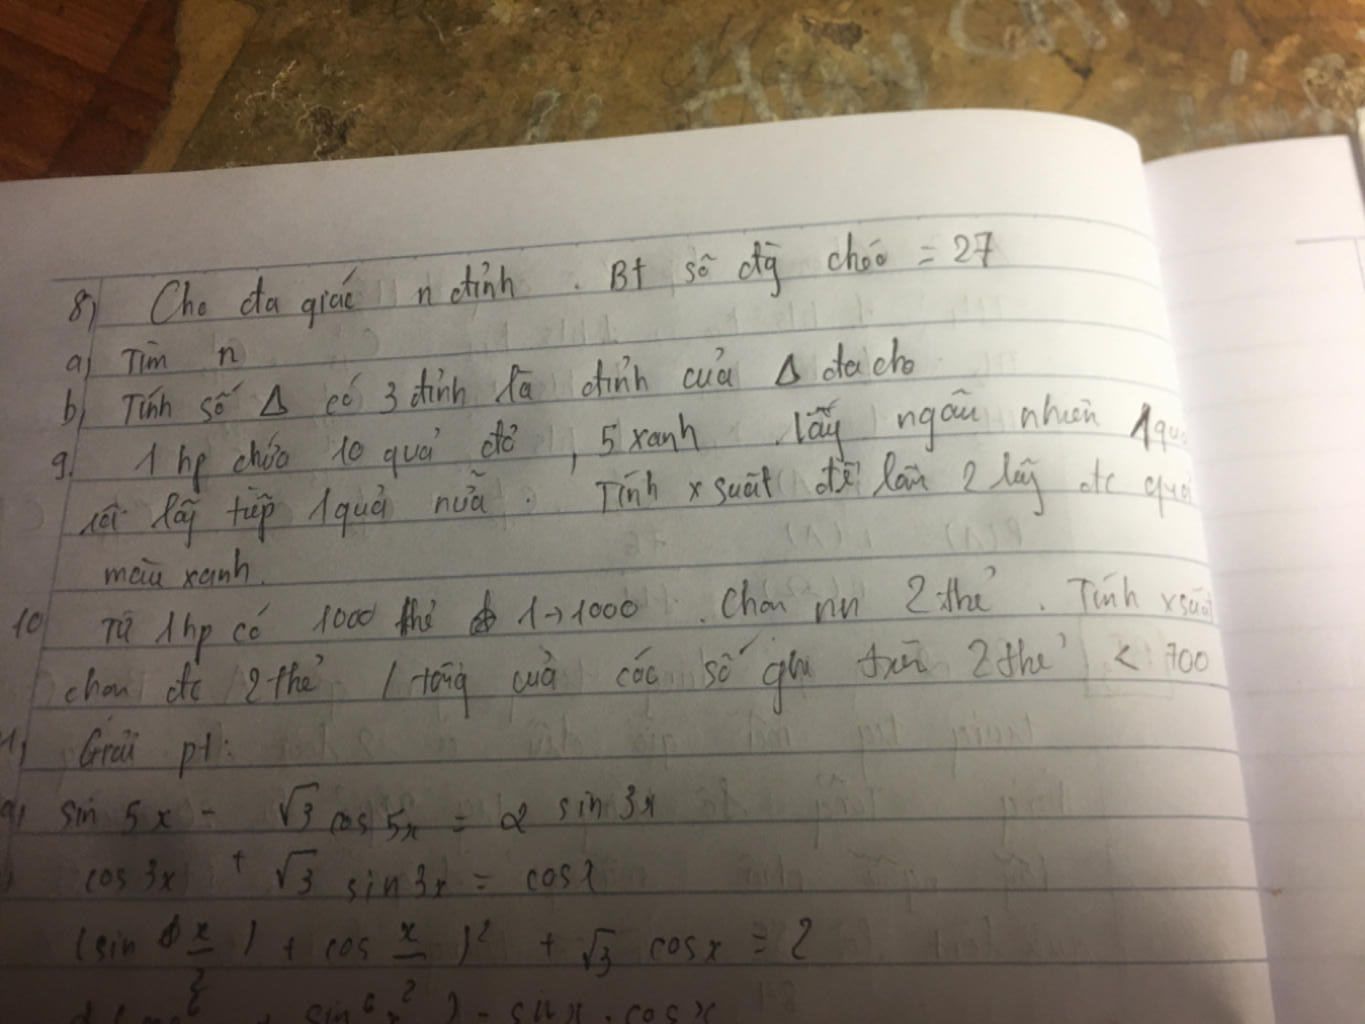 8) Cho đa giác n đỉnh. Bt số đg chéo = 27
a) Tìm n
b) Tính số Δ có 3 đỉnh là đỉnh của Δ đa cho
9. 1 hp chứa 10 quả đỏ, 5 xanh. lấy ngẫu nhiên 1 quả
rồi lấy tiếp 1 quả nữa. Tính xsuất để lần 2 lấy đc quả
màu xanh.
10 Từ 1 hp có 1000 thẻ 1→1000. Chọn nn 2 thẻ. Tính xsuất
chọn đc 2 thẻ / tổng của các số ghi trên 2 thẻ < 700
Giải pt:
a) sin 5x - √3 cos 5x = 2 sin 3x
cos 3x + √3 sin 3x = cos x
(sin x/2 ) + cos x/2 )² + √3 cos x = 2
sin⁶ x ) - sin x . cos x